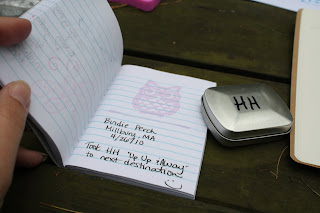 Birdie Perch
Millbury, MA
4/26/10
Took HH "Up Up & Away"
to next destination
HH